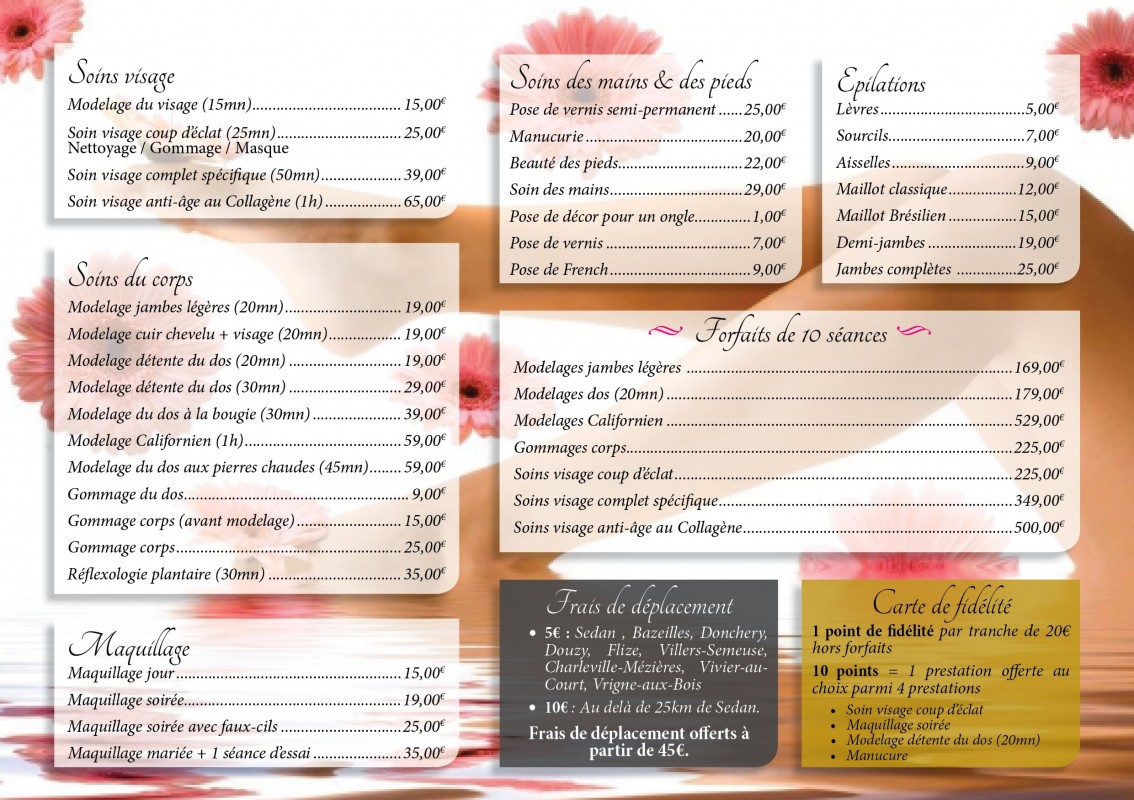 Soins visage
Modelage du visage (15mn)................................. 15,00€
Soin visage coup d'éclat (25mn)............................ 25,00€
Nettoyage / Gommage / Masque
Soin visage complet spécifique (50mn).................. 39,00€
Soin visage anti-âge au Collagène (1h)................. 65,00€
Soins du corps
Modelage jambes légères (20mn).......................... 19,00€
Modelage cuir chevelu + visage (20mn)................ 19,00€
Modelage détente du dos (20mn) ......................... 19,00€
Modelage détente du dos (30mn) ......................... 29,00€
Modelage du dos à la bougie (30mn) .................... 39,00€
Modelage Californien (1h)................................... 59,00€
Modelage du dos aux pierres chaudes (45mn)....... 59,00€
Gommage du dos.................................................. 9,00€
Gommage corps (avant modelage)........................ 15,00€
Gommage corps.................................................. 25,00€
Réflexologie plantaire (30mn) .............................. 35,00€
Maquillage
Maquillage jour.................................................. 15,00€
Maquillage soirée................................................ 19,00€
Maquillage soirée avec faux-cils ........................... 25,00€
Maquillage mariée + 1 séance d'essai ................... 35,00€
Soins des mains & des pieds
Pose de vernis semi-permanent ......25,00€
Manucurie ...................................20,00€
Beauté des pieds............................22,00€
Soin des mains..............................29,00€
Pose de décor pour un ongle............1,00€
Pose de vernis ................................7,00€
Pose de French...............................9,00€
Epilations
Lèvres......................................5,00€
Sourcils....................................7,00€
Aisselles...................................9,00€
Maillot classique...................12,00€
Maillot Brésilien ...................15,00€
Demi-jambes .........................19,00€
Jambes complètes .................25,00€
Forfaits de 10 séances
Modelages jambes légères ........................................................................ 169,00€
Modelages dos (20mn) .............................................................................179,00€
Modelages Californien .............................................................................529,00€
Gommages corps.....................................................................................225,00€
Soins visage coup d'éclat..........................................................................225,00€
Soins visage complet spécifique.................................................................349,00€
Soins visage anti-âge au Collagène............................................................500,00€
Frais de déplacement
• 5€ : Sedan , Bazeilles, Donchery,
Douzy, Flize, Villers-Semeuse,
Charleville-Mézières, Vivier-au-
Court, Vrigne-aux-Bois
• 10€ : Au delà de 25km de Sedan.
Frais de déplacement offerts à
partir de 45€.
Carte de fidélité
1 point de fidélité par tranche de 20€
hors forfaits
10 points = 1 prestation offerte au
choix parmi 4 prestations
• Soin visage coup d'éclat
• Maquillage soirée
• Modelage détente du dos (20mn)
• Manucure